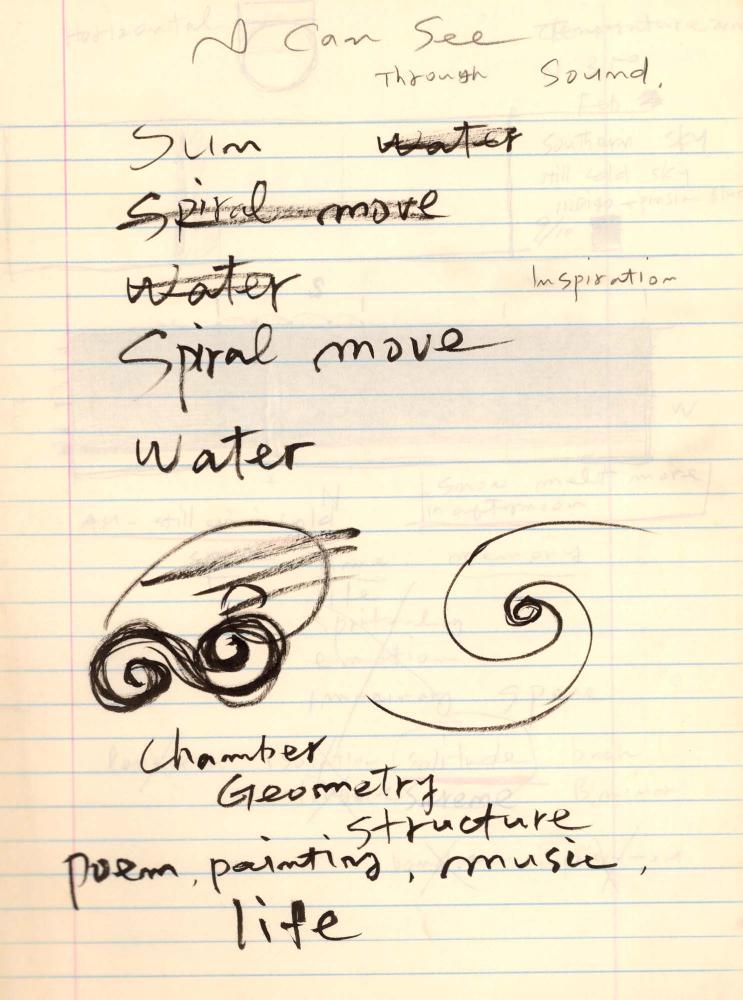 I Can See
Through Sound.
Sum Water
Spiral move
Water
Inspiration
Spiral move
Water
Chamber
Geometry
Structure
poem, painting, music,
life